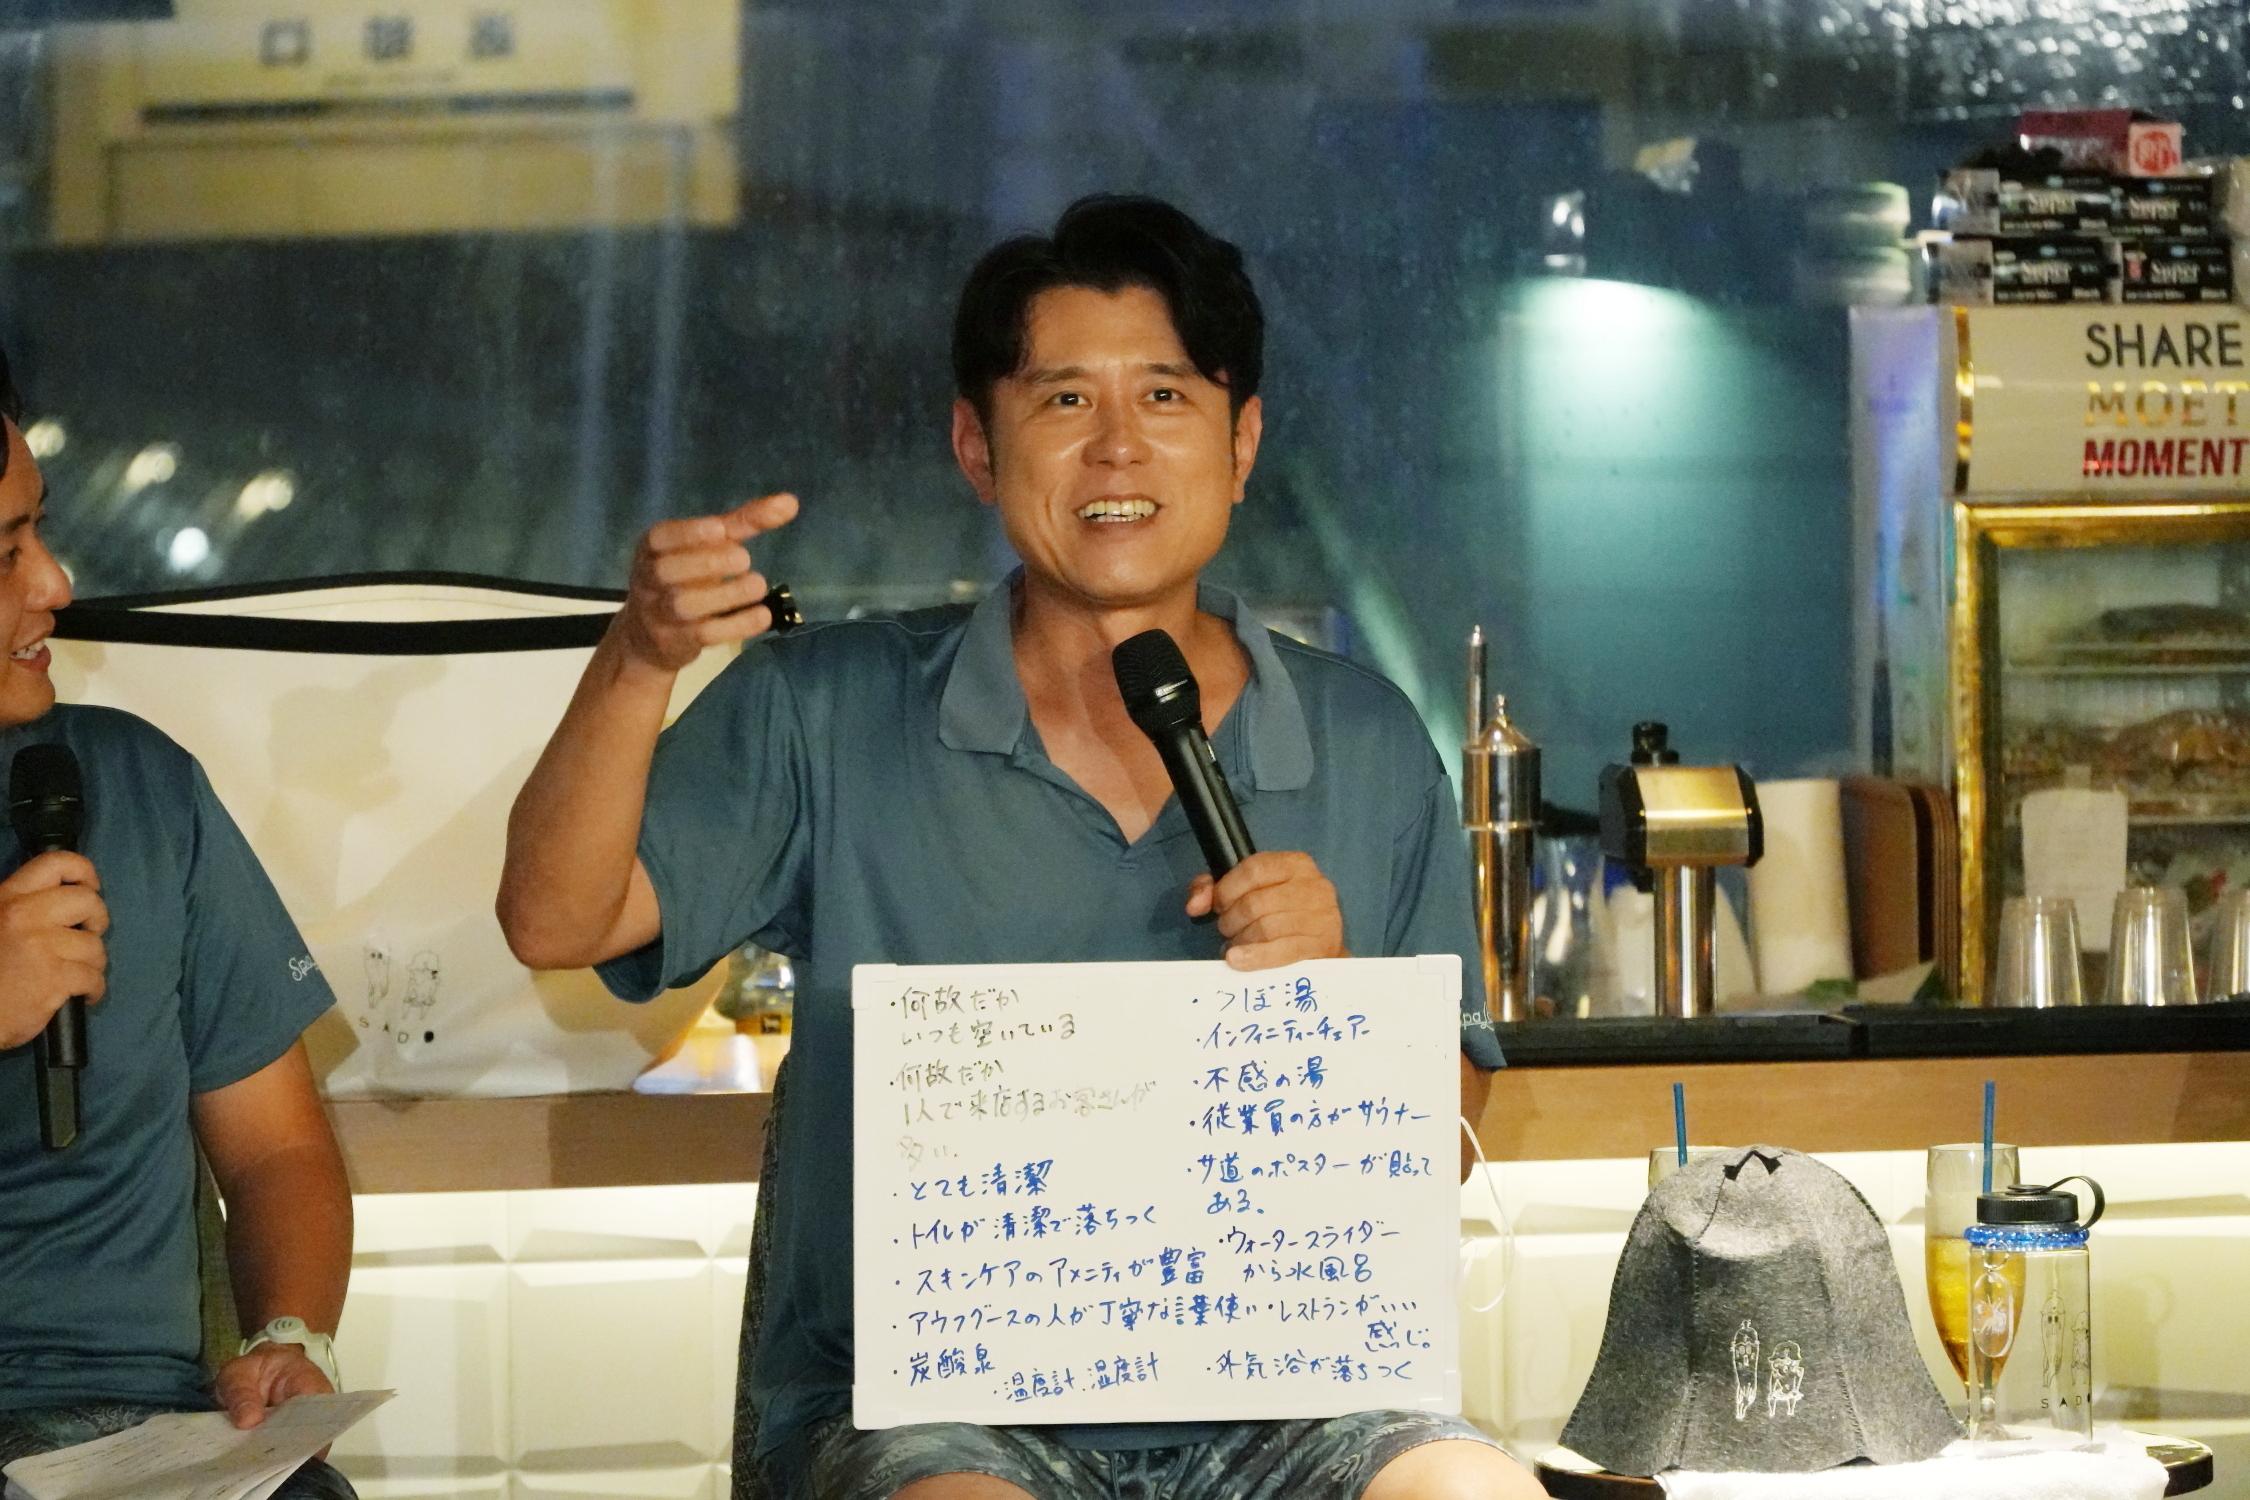 SHARE
MOET
MOMENT
Super
Super
Super
Super
SADO
・何故だか
いつも空いている
・何故だか
1人で来店するお客さんが
多い.
・とても清潔
・トイレが清潔で落ちつく
・スキンケアのアメニティが豊富
・アウフグースの人が丁寧な言葉使い
・炭酸泉
・温度計.湿度計
・つぼ湯
・インフィニティーチェアー
・不感の湯
・従業員の方がサウナー
・サ道のポスターが貼って
ある。
・ウォータースライダー
から水風呂
・レストランがいい
感じ。
・外気浴が落ちつく
SAD